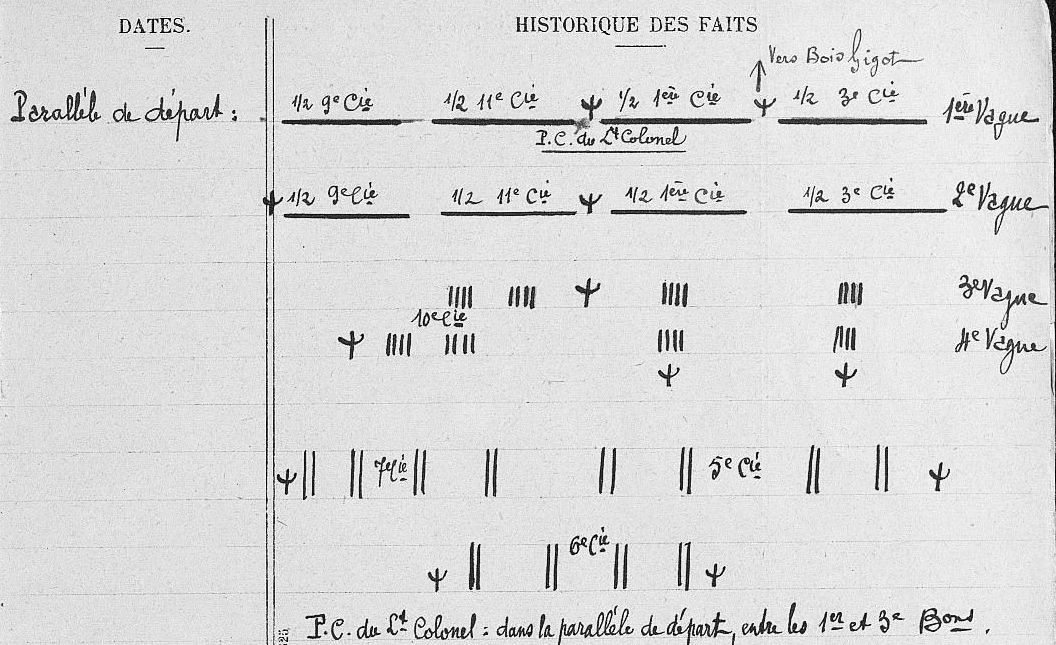 DATES. HISTORIQUE DES FAITS
Vers Bois Gigot
Parallèle de départ : 1/2 9e Cie 1/2 11e Cie 1/2 1ère Cie 1/2 3e Cie 1ère Vague
P.C. du Lt Colonel
1/2 9e Cie 1/2 11e Cie 1/2 1ère Cie 1/2 3e Cie 2e Vague
3e Vague
10e Cie
4e Vague
7e Cie 5e Cie
6e Cie
P.C. du Lt Colonel : dans la parallèle de départ, entre les 1er et 3e Bons.